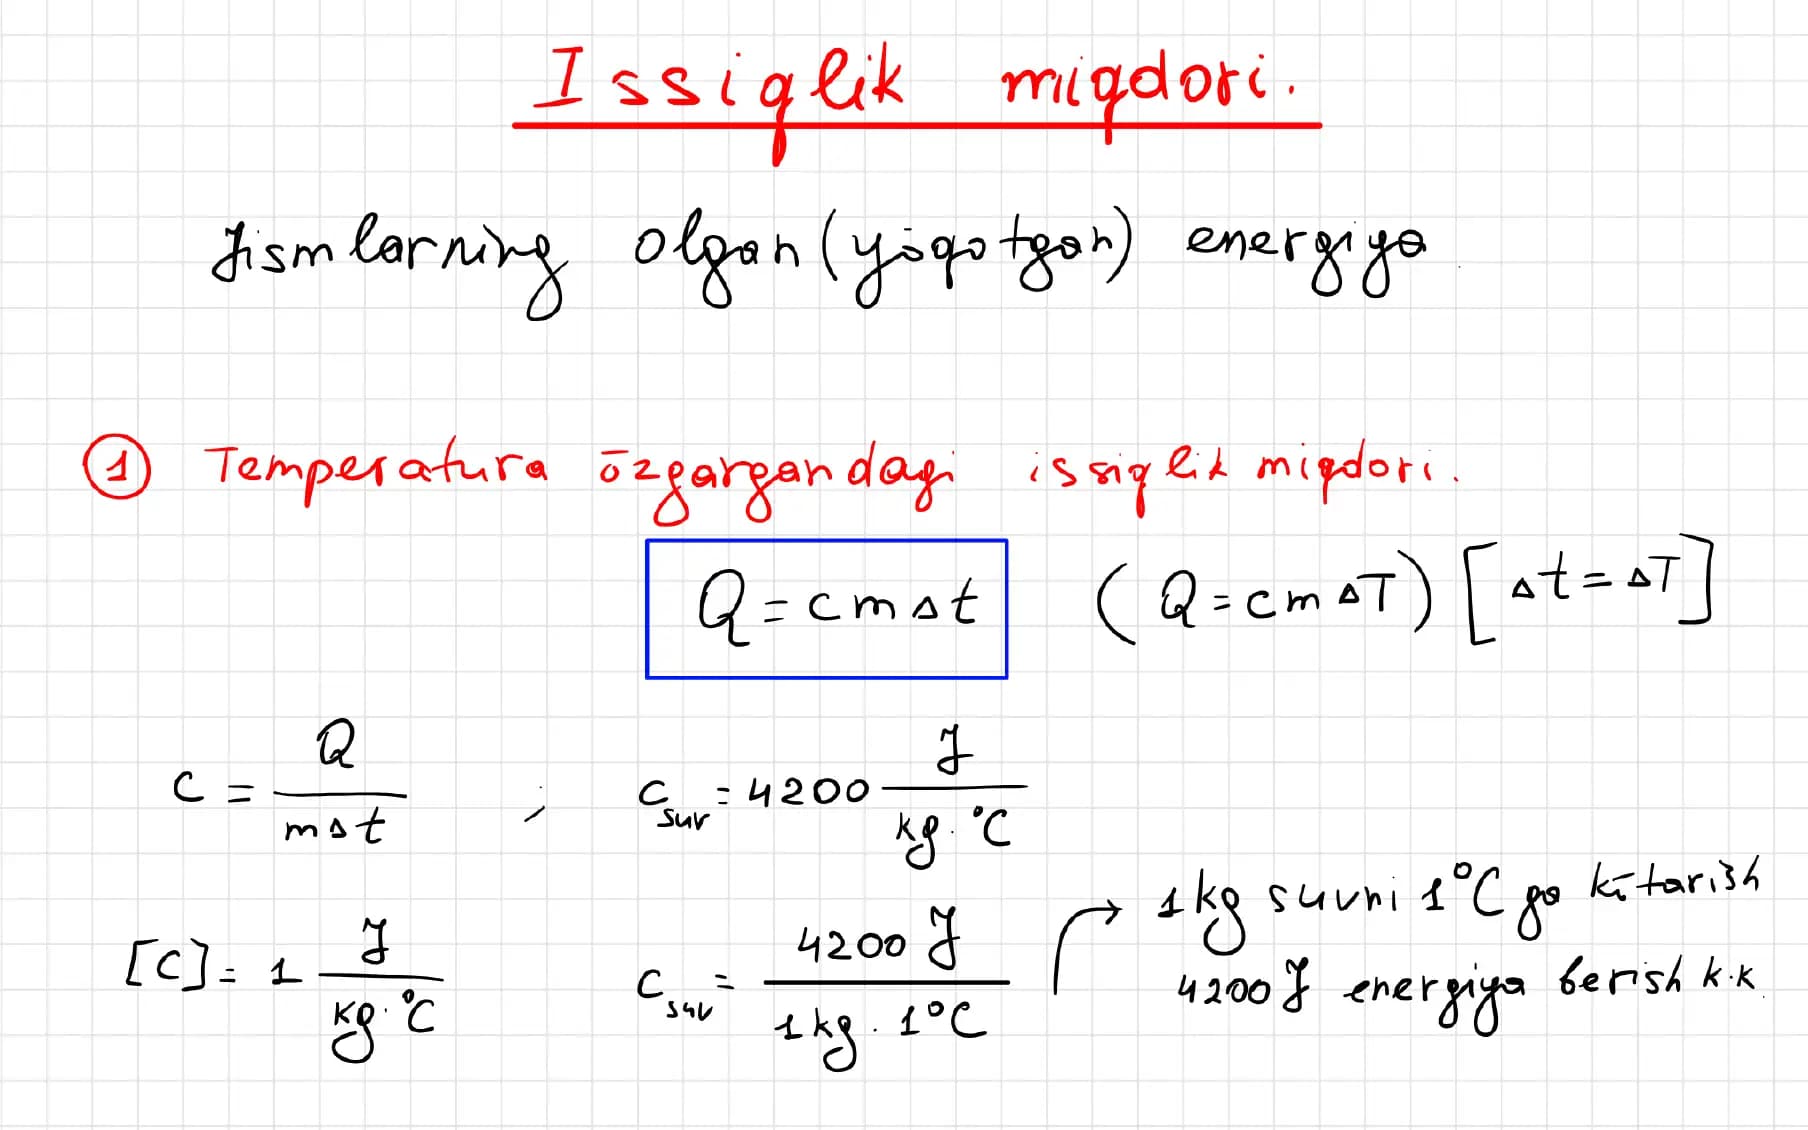 Issiqlik miqdori.
Jismlarning olgan (yōqotgan) energiya
① Temperatura ōzgargandagi issiqlik miqdori.
Q = cmΔt (Q = cmΔT) [Δt = ΔT]
c = Q / mΔt ; c_suv = 4200 J / kg·°C
[c] = 1 J / kg·°C c_suv = 4200 J / 1kg · 1°C → 1kg suvni 1°C ga kōtarish
4200 J energiya berish k.k